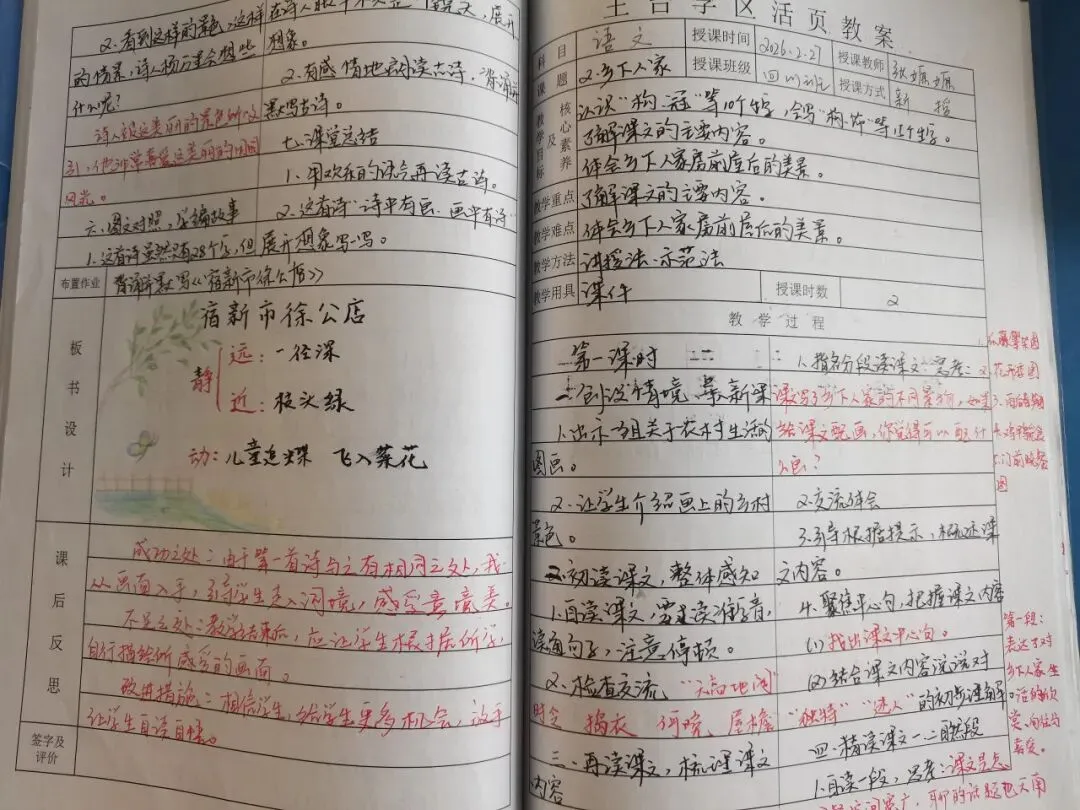 2.看到这样的景色,这样
的情景,诗人杨万里会想些
什么呢?
诗人被这美丽的景色所吸
引,他非常喜爱这美丽的田园
风光。
六、图文对照,学编故事
1.这首诗虽然只有28个字,但
展开
想象。
2.有感情地朗读古诗,背诵
默写古诗。
七、课堂总结
1.用欢乐的语气再读古诗。
2.这首诗“诗中有画,画中有诗”
展开想象写一写。
布置作业
背诵并默写《宿新市徐公店》
板书设计
宿新市徐公店
静
远:一径深
近:枝头绿
动:儿童追蝶 飞入菜花
课后反思
成功之处:由于第一首诗与之有相同之处,我
从画面入手,引导学生走入词境,感受意境美。
不足之处:教学结束后,应让学生根据所学,
自行描绘所感受的画面。
改进措施:相信学生,给学生更多机会,放手
让学生自读自悟。
签字及评价
王台学区活页教案
科目
语文
授课时间
2026.2.27
授课教师
课题
2.乡下人家
授课班级
四
授课方式
新授
教学目标及核心素养
认识“构、冠”等10个生字,会写“构、饰”等15个生字。
了解课文的主要内容。
体会乡下人家房前屋后的美景。
教学重点
了解课文的主要内容。
教学难点
体会乡下人家房前屋后的美景。
教学方法
讲授法、示范法
教学用具
课件
授课时数
2
教学过程
第一课时
一、创设情境,导入新课
1.出示一组关于农村乡生活的
图画。
2.让学生介绍画上的乡村
景色。
二、初读课文,整体感知
1.自读课文,要求读准字音,
读通句子,注意停顿。
2.检查交流 “天高地阔”
时令 捣衣 倘若 屋檐
三、再读课文,梳理课文
内容
1.指名分段读课文,思考:
课文写了乡下人家的不同景物,如果
给课文配画,你觉得可以配什
么画?
2.交流体会
3.引导根据提示,概述课
文内容。
4.聚焦中心句,把握课文内容
(1)找出课文中心句。
(2)结合课文内容说说对
“独特”“迷人”的初步理解
四、精读课文一、二自然段
1.自读一段,思考:课文景点
2.花开图
3.雨后春笋
4.鸡鸭觅食
5.门前晚餐
图
第一段:
表达了对
乡下人家生
活的欣
赏、向往与
喜爱。